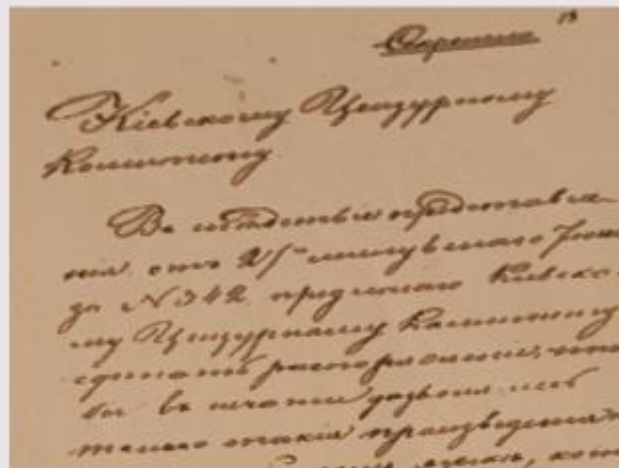 Секретно
Кіевскому Цензурному
Комитету.
Въ слѣдствіе представле-
нія отъ 27го минувшаго Іюня
за №342, предлагаю Кіевско-
му Цензурному Комитету
сдѣлать распоряженіе, что
бы въ печати дозволя
только такія произведенія